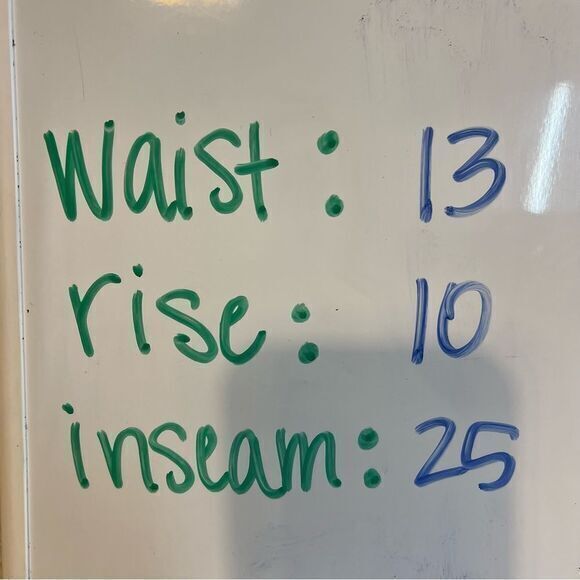 Waist: 13
rise: 10
inseam: 25